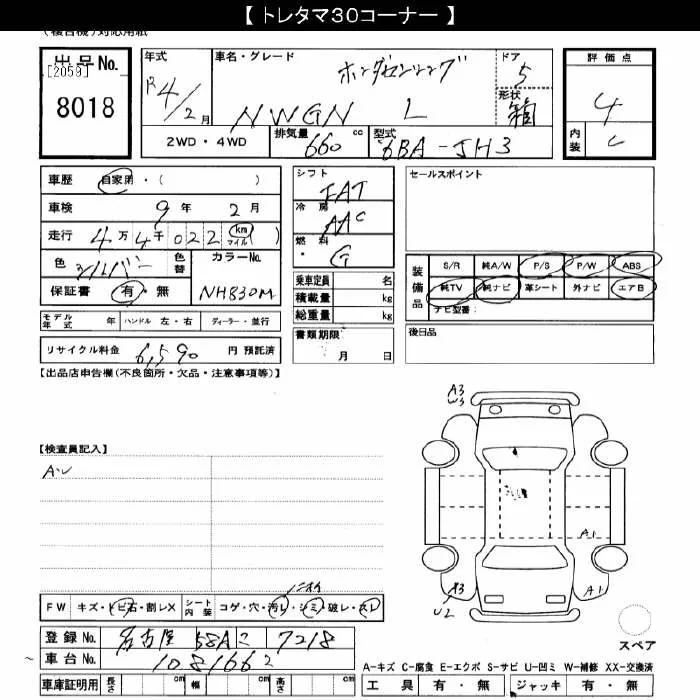 【 トレタマ30コーナー 】
(複合機)対応用紙
出品No.
[2059]
8018
年式
R4/2月
車名・グレード
ホンダセンシング
NWGN L
ドア
5
形状
箱
評価点
4
内装
C
2WD・4WD
排気量 660 cc
型式 6BA-JH3
車歴 自家用・( )
車検 9年 2月
走行 4万4千022 (km マイル)( )
色 シルバー
色替
カラーNo.
NH830M
保証書 有・無
モデル年式 年 ハンドル 左・右 ディーラー・並行
リサイクル料金 6,590 円 預託済
シフト
FAT
冷房
AAC
燃料
G
乗車定員 名
積載量 kg
総重量 kg
書類期限
月 日
セールスポイント
装備品
S/R 純A/W P/S P/W ABS
純TV 純ナビ 革シート 外ナビ エアB
ナビ型番:
後日品
【出品店申告欄(不良箇所・欠品・注意事項等)】
【検査員記入】
A・U
A3
W3
A1
A3
U2
A1
スペア
ニオイ
FW キズ・トビ石・割レX シート内装 コゲ・穴・汚レ・シミ・破レ・スレ
登録No. 名古屋 58A こ 7218
車台No. 1081662
車庫証明用 長さ cm 幅 cm 高さ cm
A-キズ C-腐食 E-エクボ S-サビ U-凹ミ W-補修 XX-交換済
工具 有・無 ジャッキ 有・無